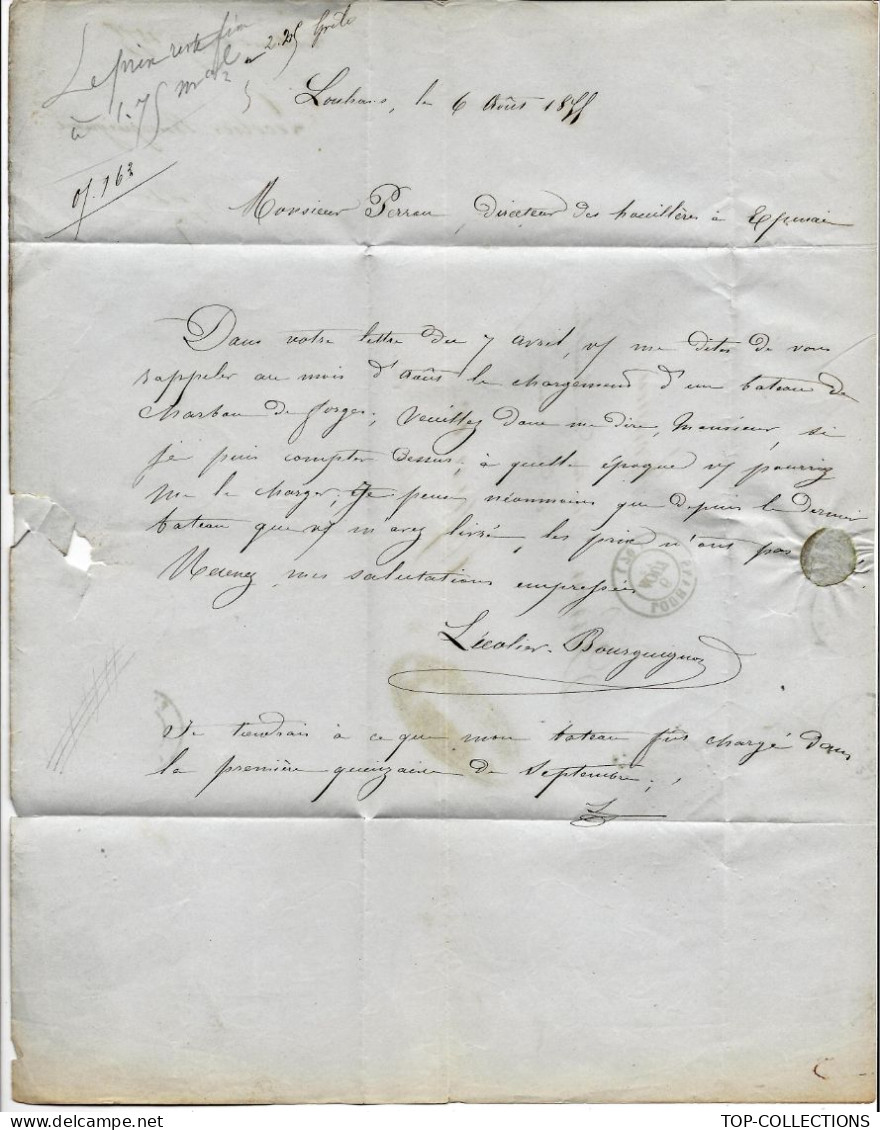 Le prix reste fixé
à 1.75 mal 2.25 Grêle
of. 163
Louhans, le 6 Août 1855
Monsieur Perrau, directeur des houillères à Epinac
Dans votre lettre du 7 avril, vs me dites de vous
rappeler au mois d'août le chargement d'un bateau de
charbon de forges; Veuillez donc me dire, Monsieur, si
je puis compter dessus, à quelle époque vs pourrez
me le charger; je pense néanmoins que depuis le dernier
bateau que vs m'avez livré, les prix n'ont pas
Recevez mes salutations empressées
Lécolier-Bourguignon
Je tiendrais à ce que mon bateau fut chargé dans
la première quinzaine de Septembre;
TOP-COLLECTIONS